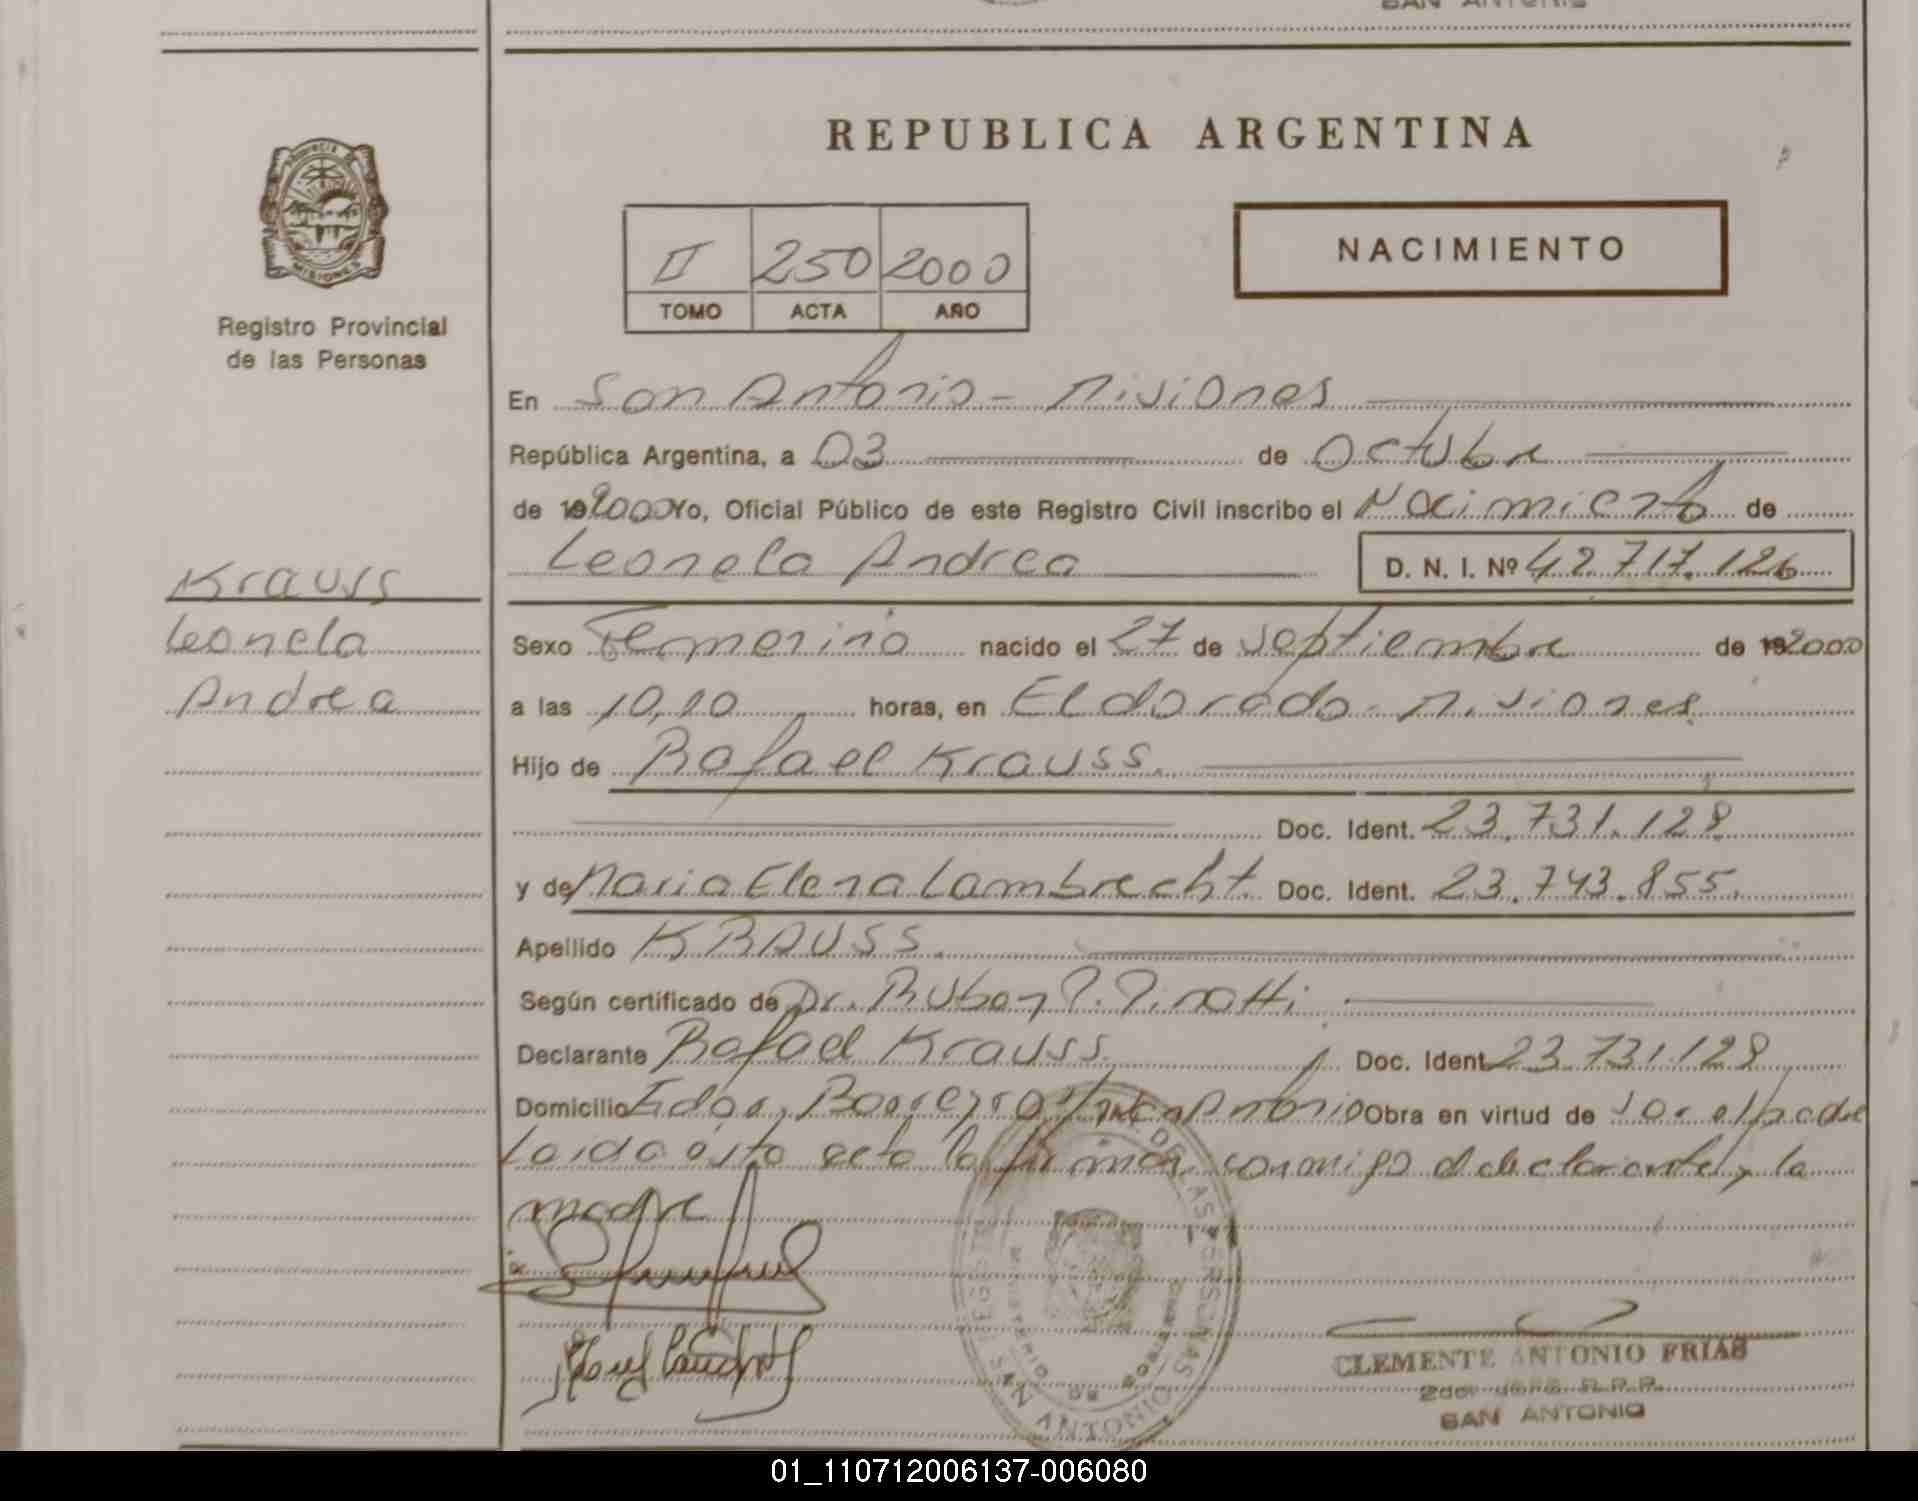 REPUBLICA ARGENTINA
PROVINCIA DE
MISIONES
Registro Provincial
de las Personas
II 250 2000
TOMO ACTA AÑO
NACIMIENTO
En San Antonio - Misiones
República Argentina, a 03 de Octubre
de 192000 Yo, Oficial Público de este Registro Civil inscribo el Nacimiento de
Leonela Andrea D. N. I. Nº 42.717.126
Krauss
Leonela
Andrea
Sexo Femenino nacido el 27 de septiembre de 192000
a las 10,10 horas, en Eldorado - Misiones
Hijo de Rafael Krauss.
Doc. Ident. 23.731.128
y de Maria Elena Lambrecht. Doc. Ident. 23.743.855.
Apellido KRAUSS.
Según certificado de Dr. Ruben P. Pinotti
Declarante Rafael Krauss. Doc. Ident 23.731.128
Domicilio Antonio Obra en virtud de ser el padre
Leida ésta acta la firman conmigo el declarante y la
madre
DE LAS PERSONAS
MINISTERIO DE GOBIERNO
SAN ANTONIO
CLEMENTE ANTONIO FRIAS
2do. Jefe R.P.P.
SAN ANTONIO
01_110712006137-006080